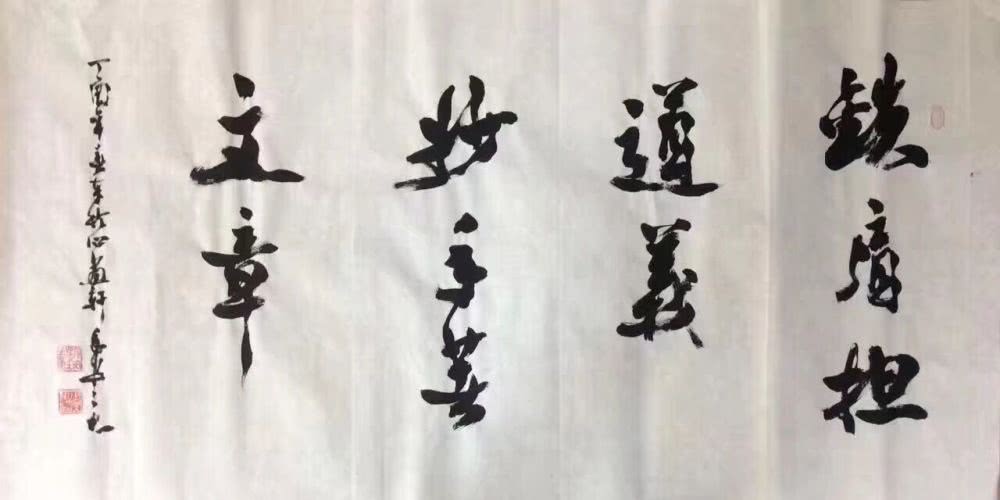 鐵肩担
道義
妙手著
文章
丁酉年 於心 軒